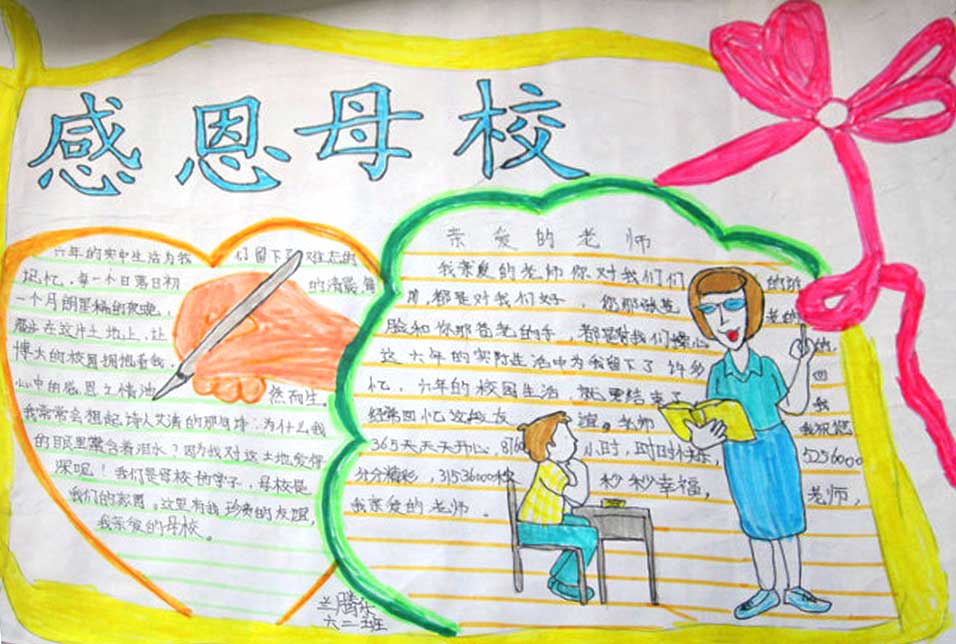 感恩母校
六年的实中生活为我们留下了难忘的
记忆，每一个日落日初的清晨,每
一个月朗星稀的夜晚，
在这片土地上，让
博大的校园拥抱着我，
心中的感恩之情油然而生。
我常常会想起,诗人艾青的那句诗:为什么我
的眼里常含着泪水？因为我对这土地爱得
深呢！我们是母校的学子，母校是
我们的家园，这里有我珍贵的友谊，
我亲爱的母校。
亲爱的老师
我亲爱的老师你对我们们的
都是对我们好，您那张苍老的
脸和你那苍老的手，都是对我们操心的,
这六年的实际生活中为我留下了许多回
忆，六年的校园生活就要结束了我
经常回忆这段友谊。老师我祝您
365天天天开心，8760小时，时时快乐，5256000
分分精彩，31536000秒秒秒幸福，老师，
我亲爱的老师。
兰腾乐
六二班